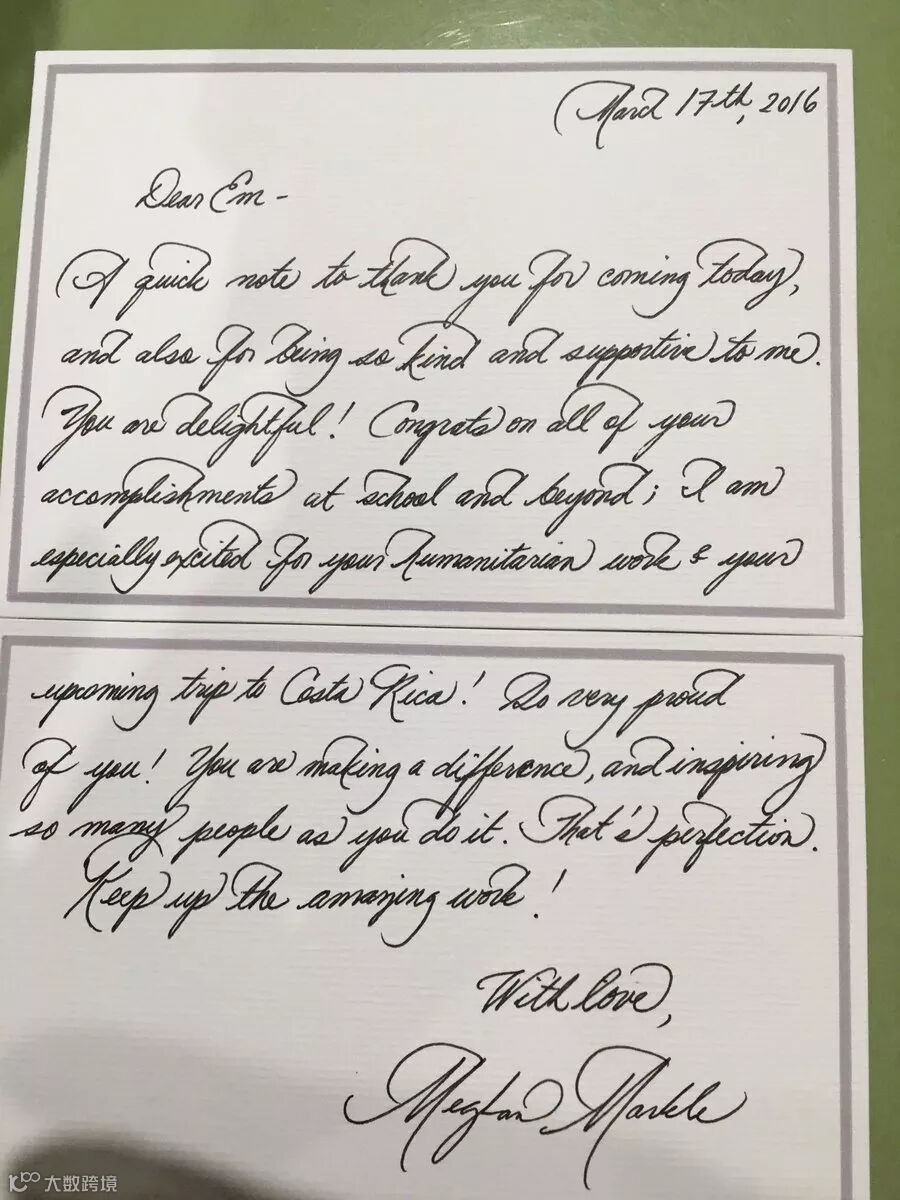 March 17th, 2016
Dear Em-
A quick note to thank you for coming today,
and also for being so kind and supportive to me.
You are delightful! Congrats on all of your
accomplishments at school and beyond; I am
especially excited for your humanitarian work & your
upcoming trip to Costa Rica! So very proud
of you! You are making a difference, and inspiring
so many people as you do it. That's perfection.
Keep up the amazing work!
With love,
Meghan Markle
大数跨境